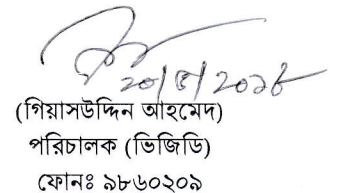 ২০/৫/২০১৮
(গিয়াসউদ্দিন আহমেদ)
পরিচালক (ভিজিডি)
ফোনঃ ৯৮৬০২০৯